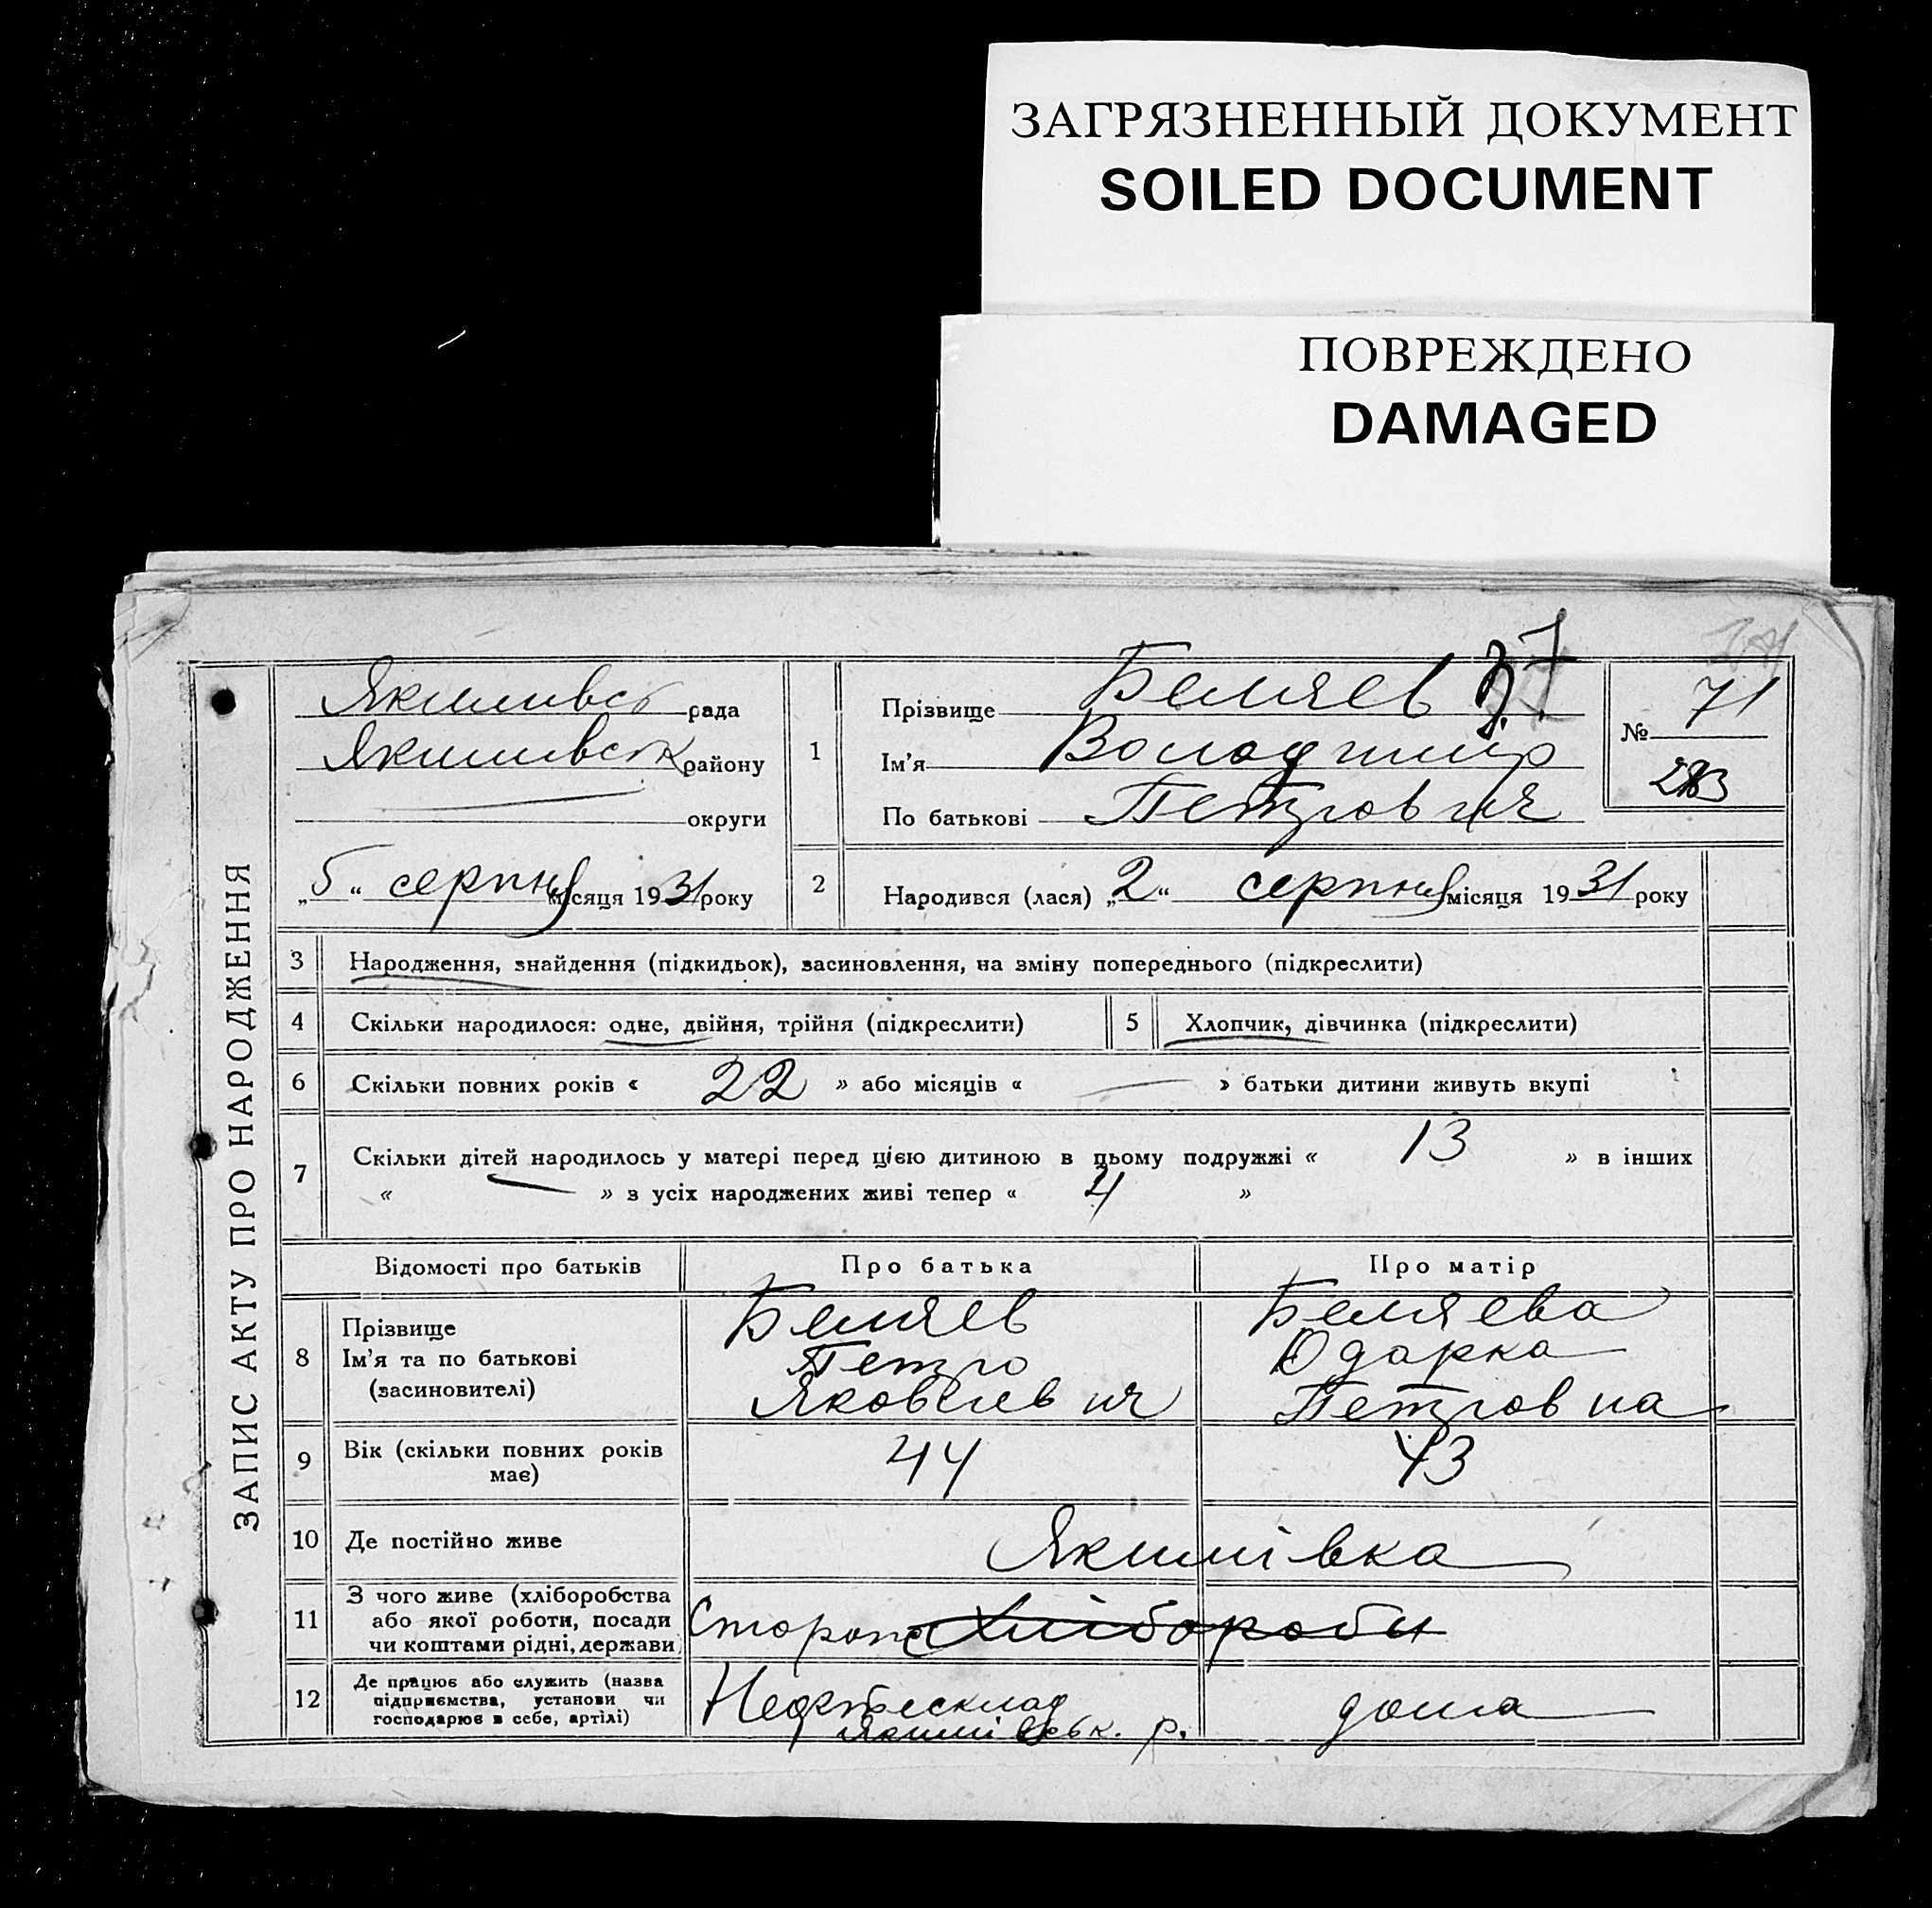 ЗАГРЯЗНЕННЫЙ ДОКУМЕНТ
SOILED DOCUMENT
ПОВРЕЖДЕНО
DAMAGED
ЗАПИС АКТУ ПРО НАРОДЖЕННЯ
Якимивсь рада
Якимивськ району
округи
„5“ серпня місяця 1931 року
1
Прізвище Беляев
Ім'я Володимир
По батькові Петрович
№ 71
2
Народився (лася) „2“ серпня місяця 1931 року
3 Народження, знайдення (підкидьок), засиновлення, на зміну попереднього (підкреслити)
4 Скільки народилося: одне, двійня, трійня (підкреслити) 5 Хлопчик, дівчинка (підкреслити)
6 Скільки повних років « 22 » або місяців « — » батьки дитини живуть вкупі
7 Скільки дітей народилось у матері перед цією дитиною в цьому подружжі « 13 » в інших
« — » з усіх народжених живі тепер « 4 »
Відомості про батьків Про батька Про матір
8 Прізвище Беляев Беляева
Ім'я та по батькові Петро Одарка
(засиновителі) Яковлевич Петровна
9 Вік (скільки повних років має) 44 43
10 Де постійно живе Якимівка
11 З чого живе (хліборобства
або якої роботи, посади
чи коштами рідні, держави) Сторож Хлібороби
12 Де працює або служить (назва
підприємства, установи чи
господарює в себе, артілі) Нефтесклад дома
Якимівськ. р.